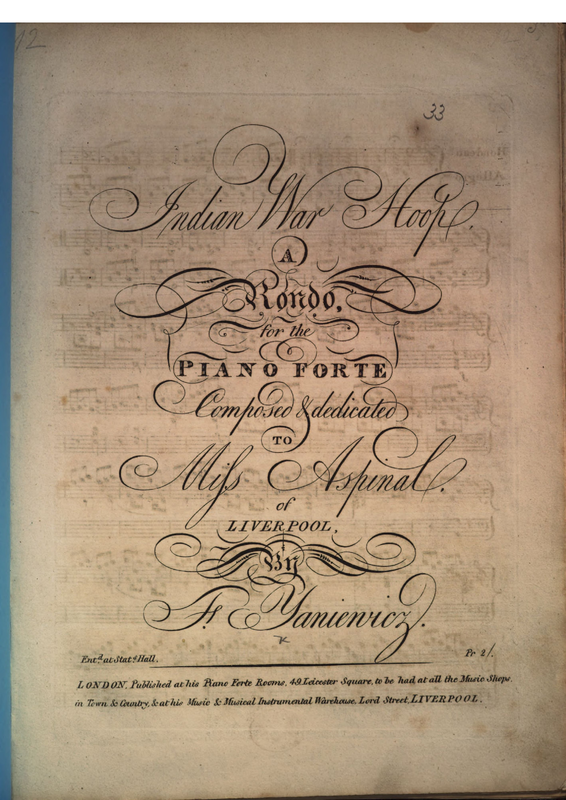 12
33
Indian War Hoop,
A
Rondo,
for the
PIANO FORTE
Composed & dedicated
TO
Miſs Aspinal.
of
LIVERPOOL,
By
F. Yaniewicz.
Ent.d at Stat.s Hall. Pr 2/.
LONDON, Published at his Piano Forte Rooms, 49, Leicester Square, to be had at all the Music Shops,
in Town & Country, & at his Music & Musical Instrumental Warehouse, Lord Street, LIVERPOOL.